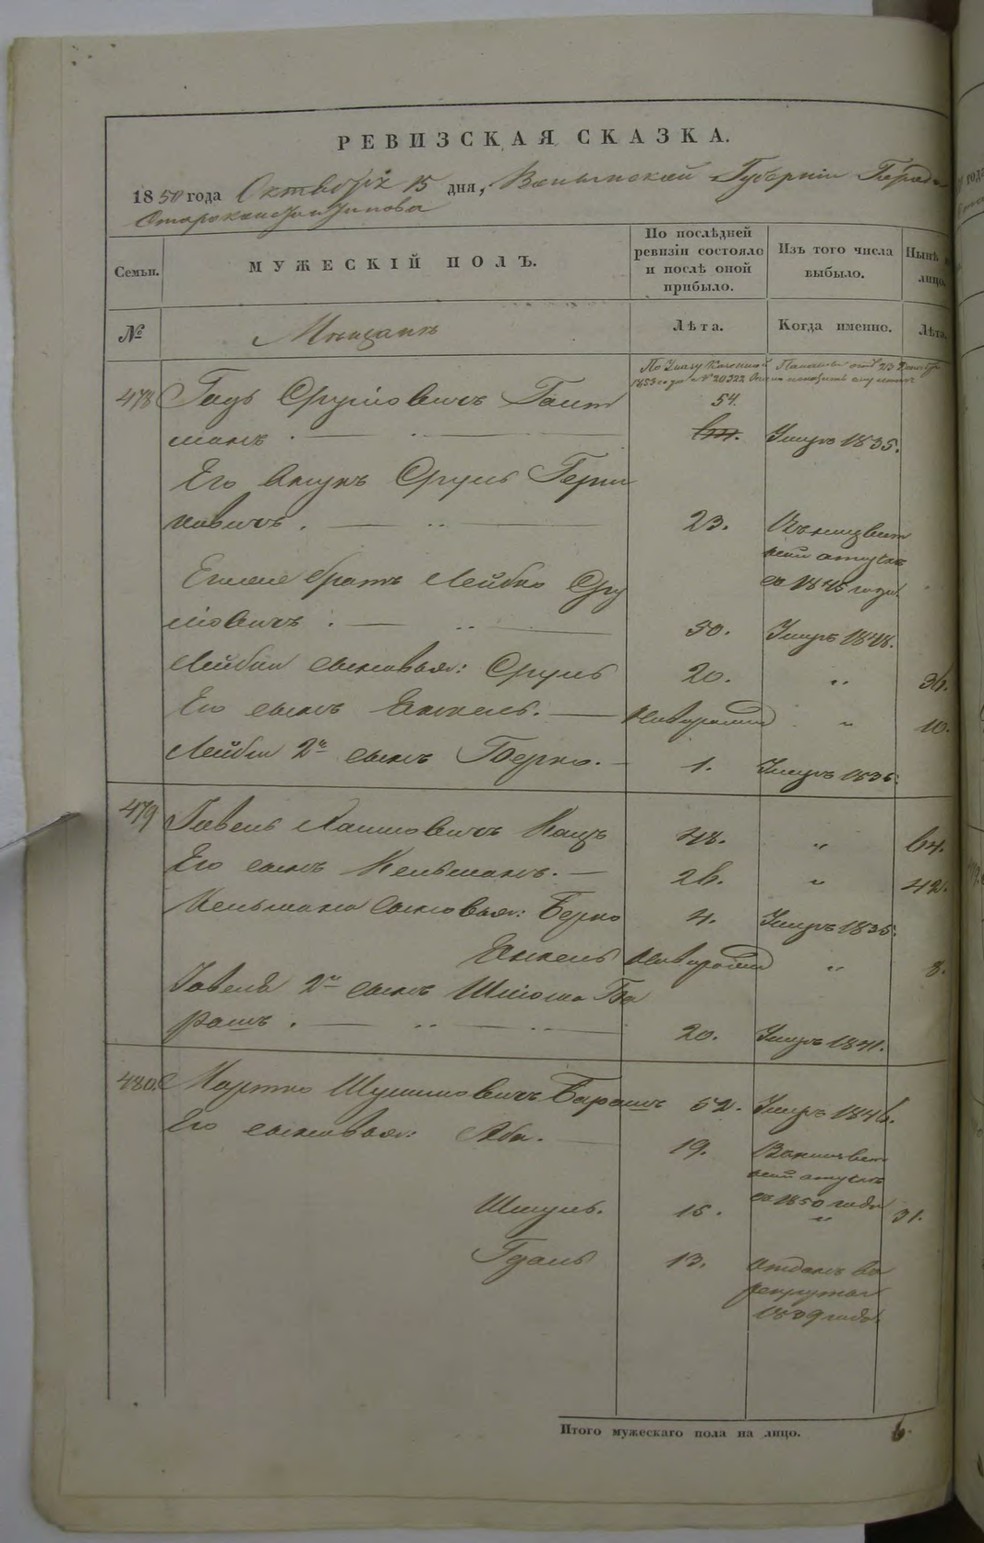 РЕВИЗСКАЯ СКАЗКА.
1850 года Октября 15 дня, Волынской Губернии Города
Староконстантинова
Семьи.
МУЖЕСКІЙ ПОЛЪ.
По послѣдней ревизіи состояло и послѣ оной прибыло.
Изъ того числа выбыло.
Нынѣ на лицо.
№
Мещанъ
Лѣта.
Когда именно.
Лѣта.
По Указу Казенной Палаты отъ 23
1853 года № 20322
478 Гадь Сруліовичъ Гоит 54.
манъ . Умеръ 1835.
Его внукъ Сруль Герш
ковичъ . 23. Въ неизвѣст
ной отлучкѣ
съ 1845 года
братъ Лейбко Сру
ліовичъ . 50. Умеръ 1848.
Лейбки сыновья: Сруль 20. " 36.
Его сынъ Янкель. Новорожден " 10.
Лейбки 2й сынъ Берко. 1. Умеръ 1836.
479 Говель Хаимовичъ Кацъ 48. " 64.
Его сынъ Кельманъ. 26. " 42.
Кельмана сыновья: Берко 4. Умеръ 1835.
Янкель Новорожден " 8.
Говеля 2й сынъ Шліома Ба
рашъ . 20. Умеръ 1841.
480. Мортко Шулимовичъ Барашъ 52. Умеръ 1846.
Его сыновья: Аба. 19. Въ неизвѣст
ной отлучкѣ
съ 1850 года
Шмуль. 15. " 31.
Гдаль 13. отданъ въ
рекруты
1839 года
Итого мужескаго пола на лицо. 6.